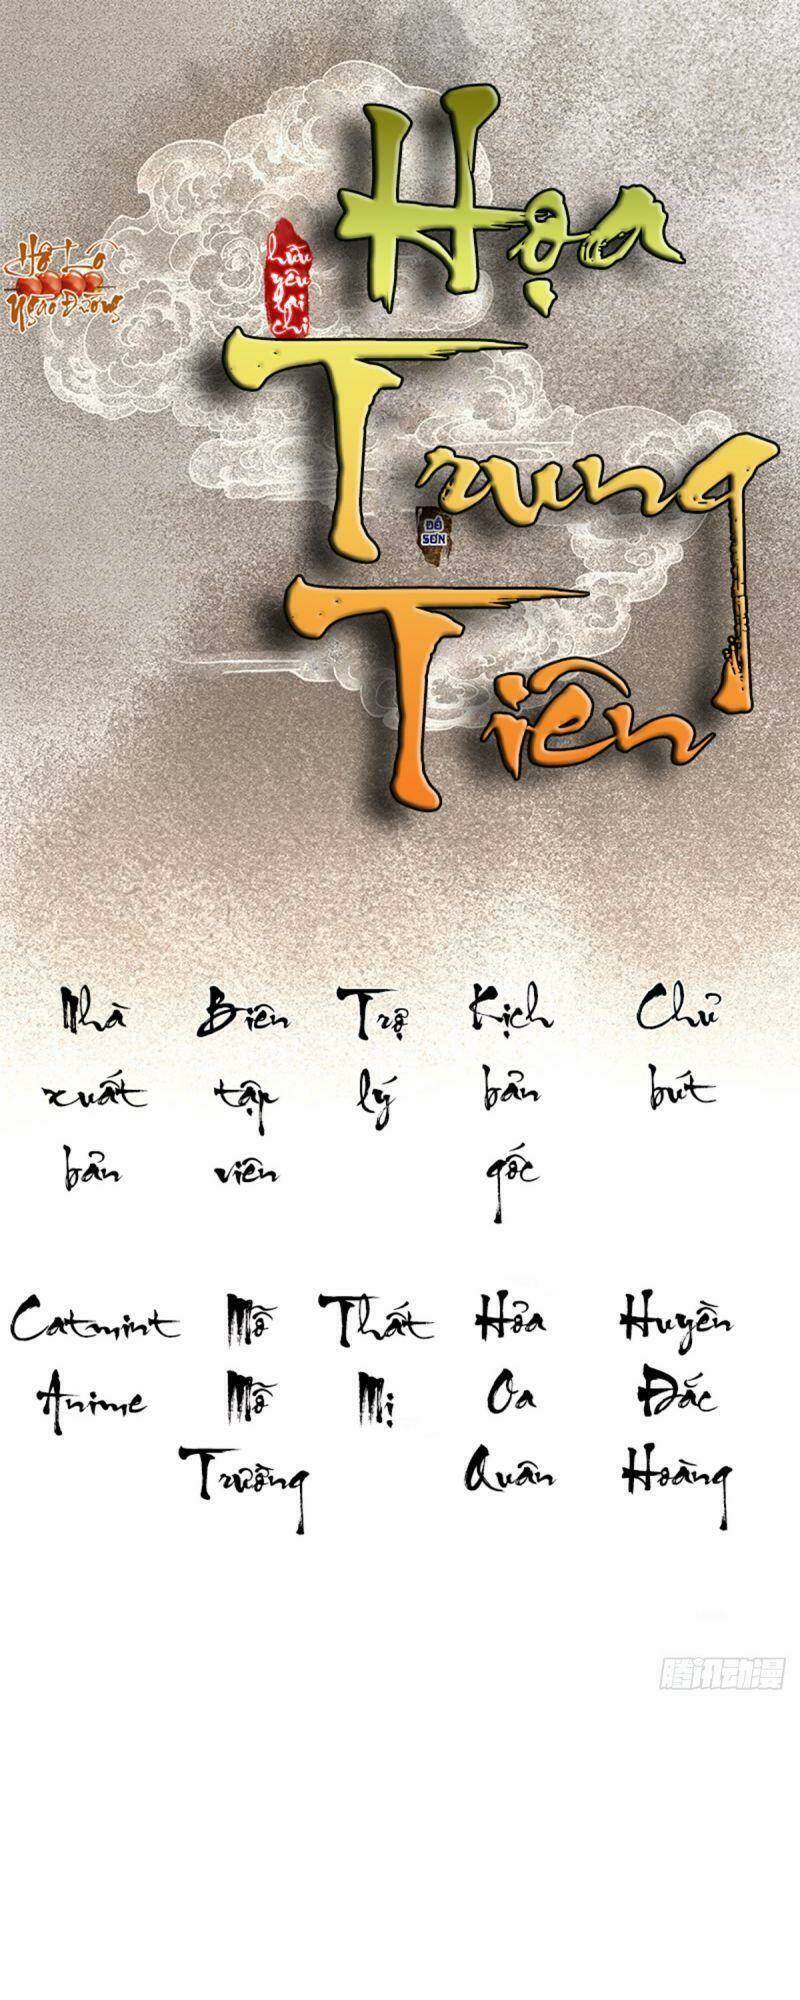 Họa
Hồ Lô
Ngào Đường
hữu
yêu
lai
chi
Trung
ĐỒ
SƠN
Tiên
Nhà xuất bản
Biên tập viên
Trợ lý
Kịch bản gốc
Chủ bút
Catmint Anime
Mỗ Mỗ Trường
Thất Mị
Hỏa Oa Quân
Huyền Đắc Hoàng
腾讯动漫